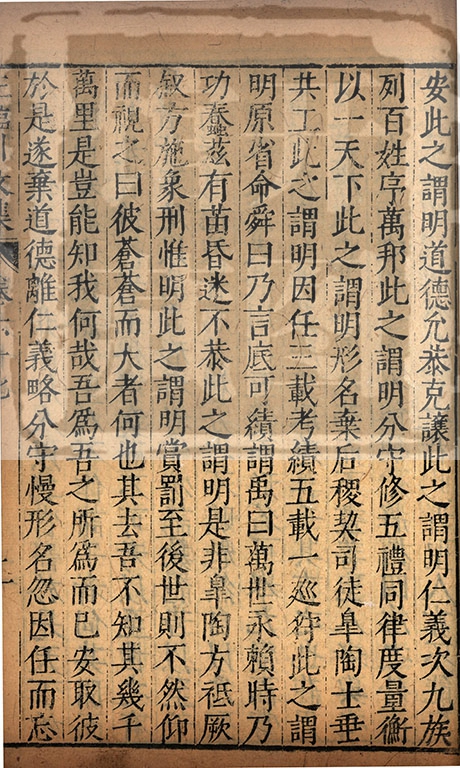 安此之謂明道德允恭克讓此之謂明仁義次九族
列百姓序萬邦此之謂明分守修五禮同律度量衡
以一天下此之謂明形名棄后稷契司徒皐陶士垂
共工此之謂明因任三載考績五載一廵狩此之謂
明原省命舜曰乃言底可績謂禹曰萬世永賴時乃
功蠢茲有苗昏迷不恭此之謂明是非皐陶方祗厥
叙方施象刑惟明此之謂明賞罰至後世則不然仰
而視之曰彼蒼蒼而大者何也其去吾不知其幾千
萬里是豈能知我何哉吾爲吾之所爲而已安取彼
於是遂棄道德離仁義略分守慢形名忽因任而忘
王臨川文集